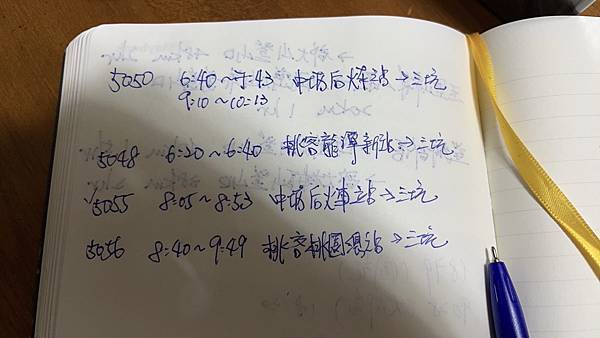 5050 6:40~7:43 中坜后火車站→三坑
9:10~10:13
5048 6:20~6:40 桃客龍潭新站→三坑
5055 8:05~8:53 中坜后火車站→三坑
5056 8:40~9:49 桃客桃園總站→三坑